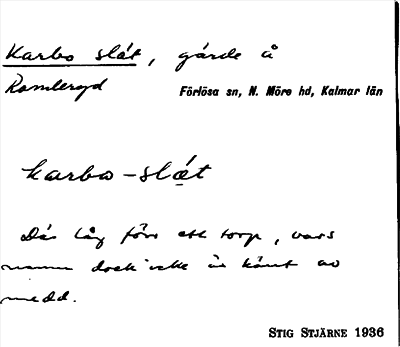 Karbo slät, gärde å
Ramleryd
Förlösa sn, N. Möre hd, Kalmar län
karbo-slæt
Där låg förr ett torp, vars
namn dock icke är känt av
medd.
STIG STJÄRNE 1936